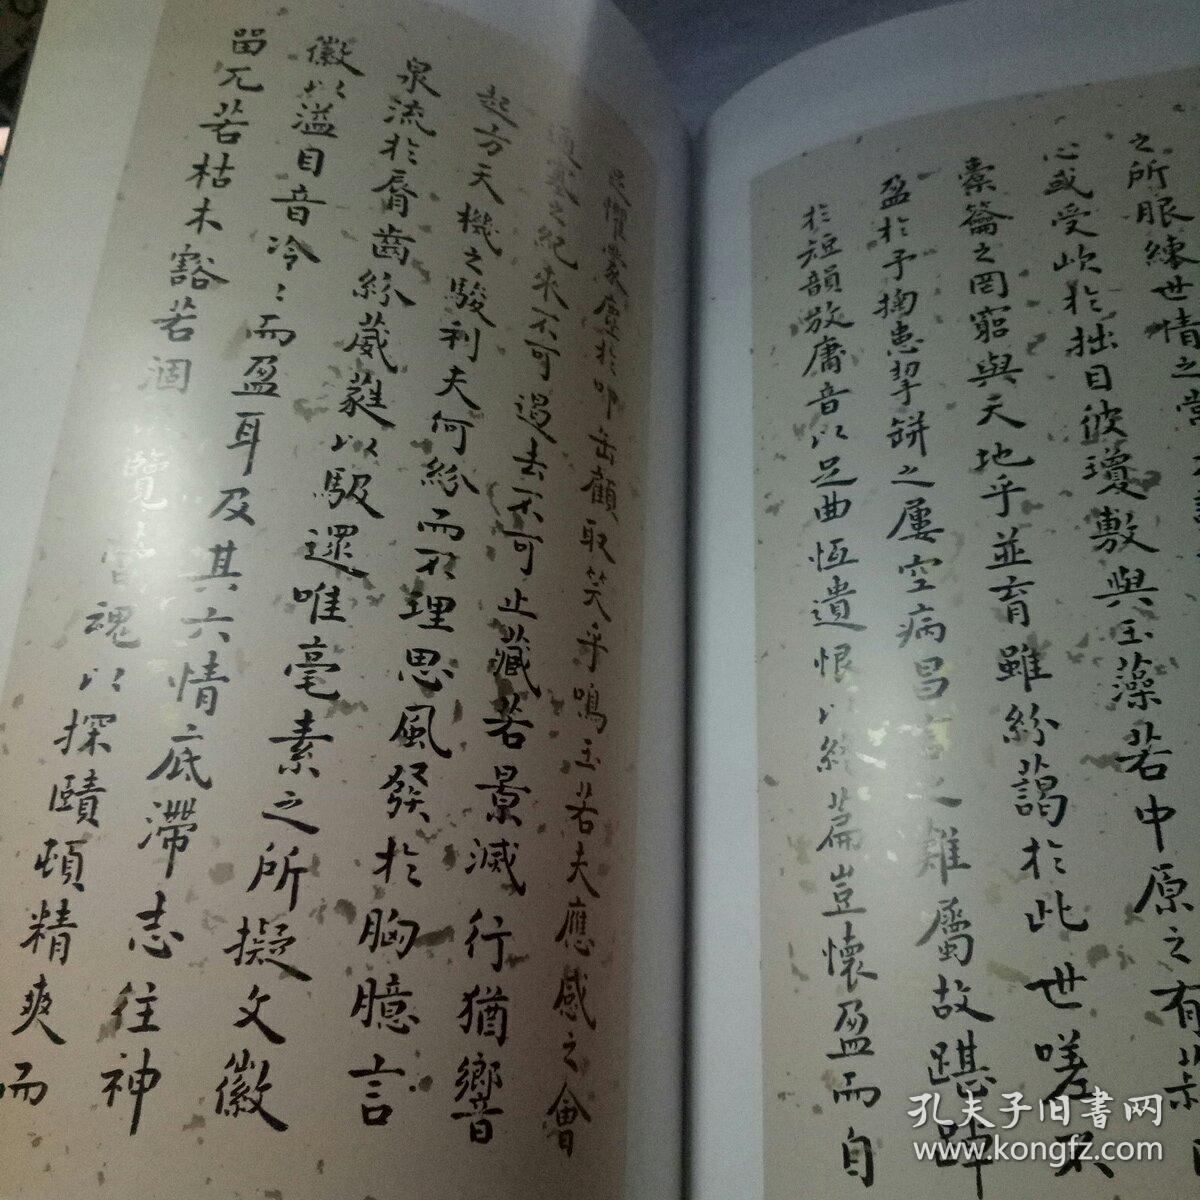 之所服練世情之常
心或受欰於拙目彼瓊敷與玉藻若中原之有菽
橐籥之罔窮與天地乎並育雖紛藹於此世嗟不
盈於予掬患挈缾之屢空病昌言之難屬故踸踔
於短韻放庸音以足曲恆遺恨以終篇豈懷盈而自
足懼蒙塵於叩缶顧取笑乎鳴玉若夫應感之會
通塞之紀來不可遏去不可止藏若景滅行猶響
起方天機之駿利夫何紛而不理思風發於胸臆言
泉流於脣齒紛葳蕤以馺遝唯毫素之所擬文徽
徽以溢目音泠〻而盈耳及其六情底滯志往神
留兀若枯木豁若涸覽營魂以探賾頓精爽而
孔夫子旧書网
www.kongfz.com